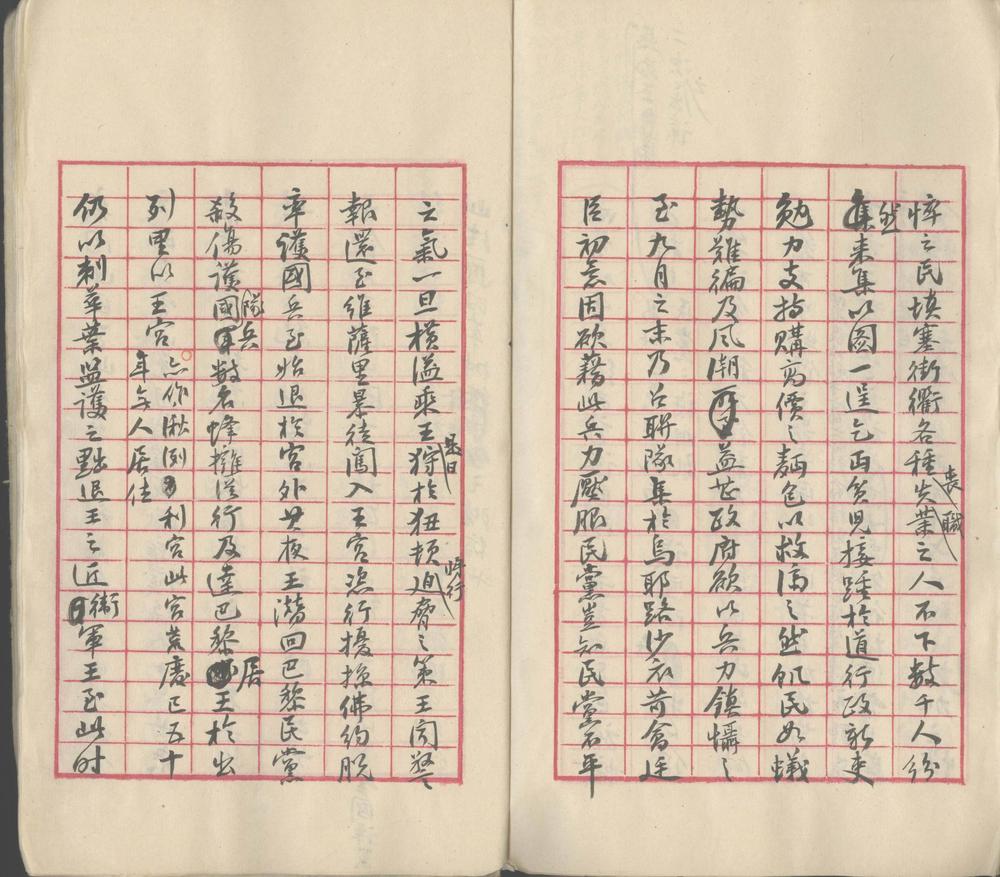 悍之民填塞街衢各種失業之人不下數千人紛
喪職
然來集以圖一逞乞丐貧兒接踵於道行政新吏
勉力支持購高價之麵包以救濟之然飢民如蟻
勢難徧及風潮益甚政府欲以兵力鎮懾之
至九月之末乃召聯隊集於烏耶路沙衣苛會廷
臣初意固欲藉此兵力壓服民黨豈知民黨不平
之氣一旦橫溢乘王狩於狃頓迫脅之策王聞警
是日
將行
報還至維薩里暴徒闖入王宮恣行擾攘佛約脫
率護國兵至始退於宮外其夜王潛回巴黎民黨
殺傷護國隊兵數名蜂擁從行及達巴黎王居於出
列里以王宮亦作湫洌利宮此宮荒廢已五十
年無人居住
仍以刺華葉監護之黜退王之近衛軍王至此時